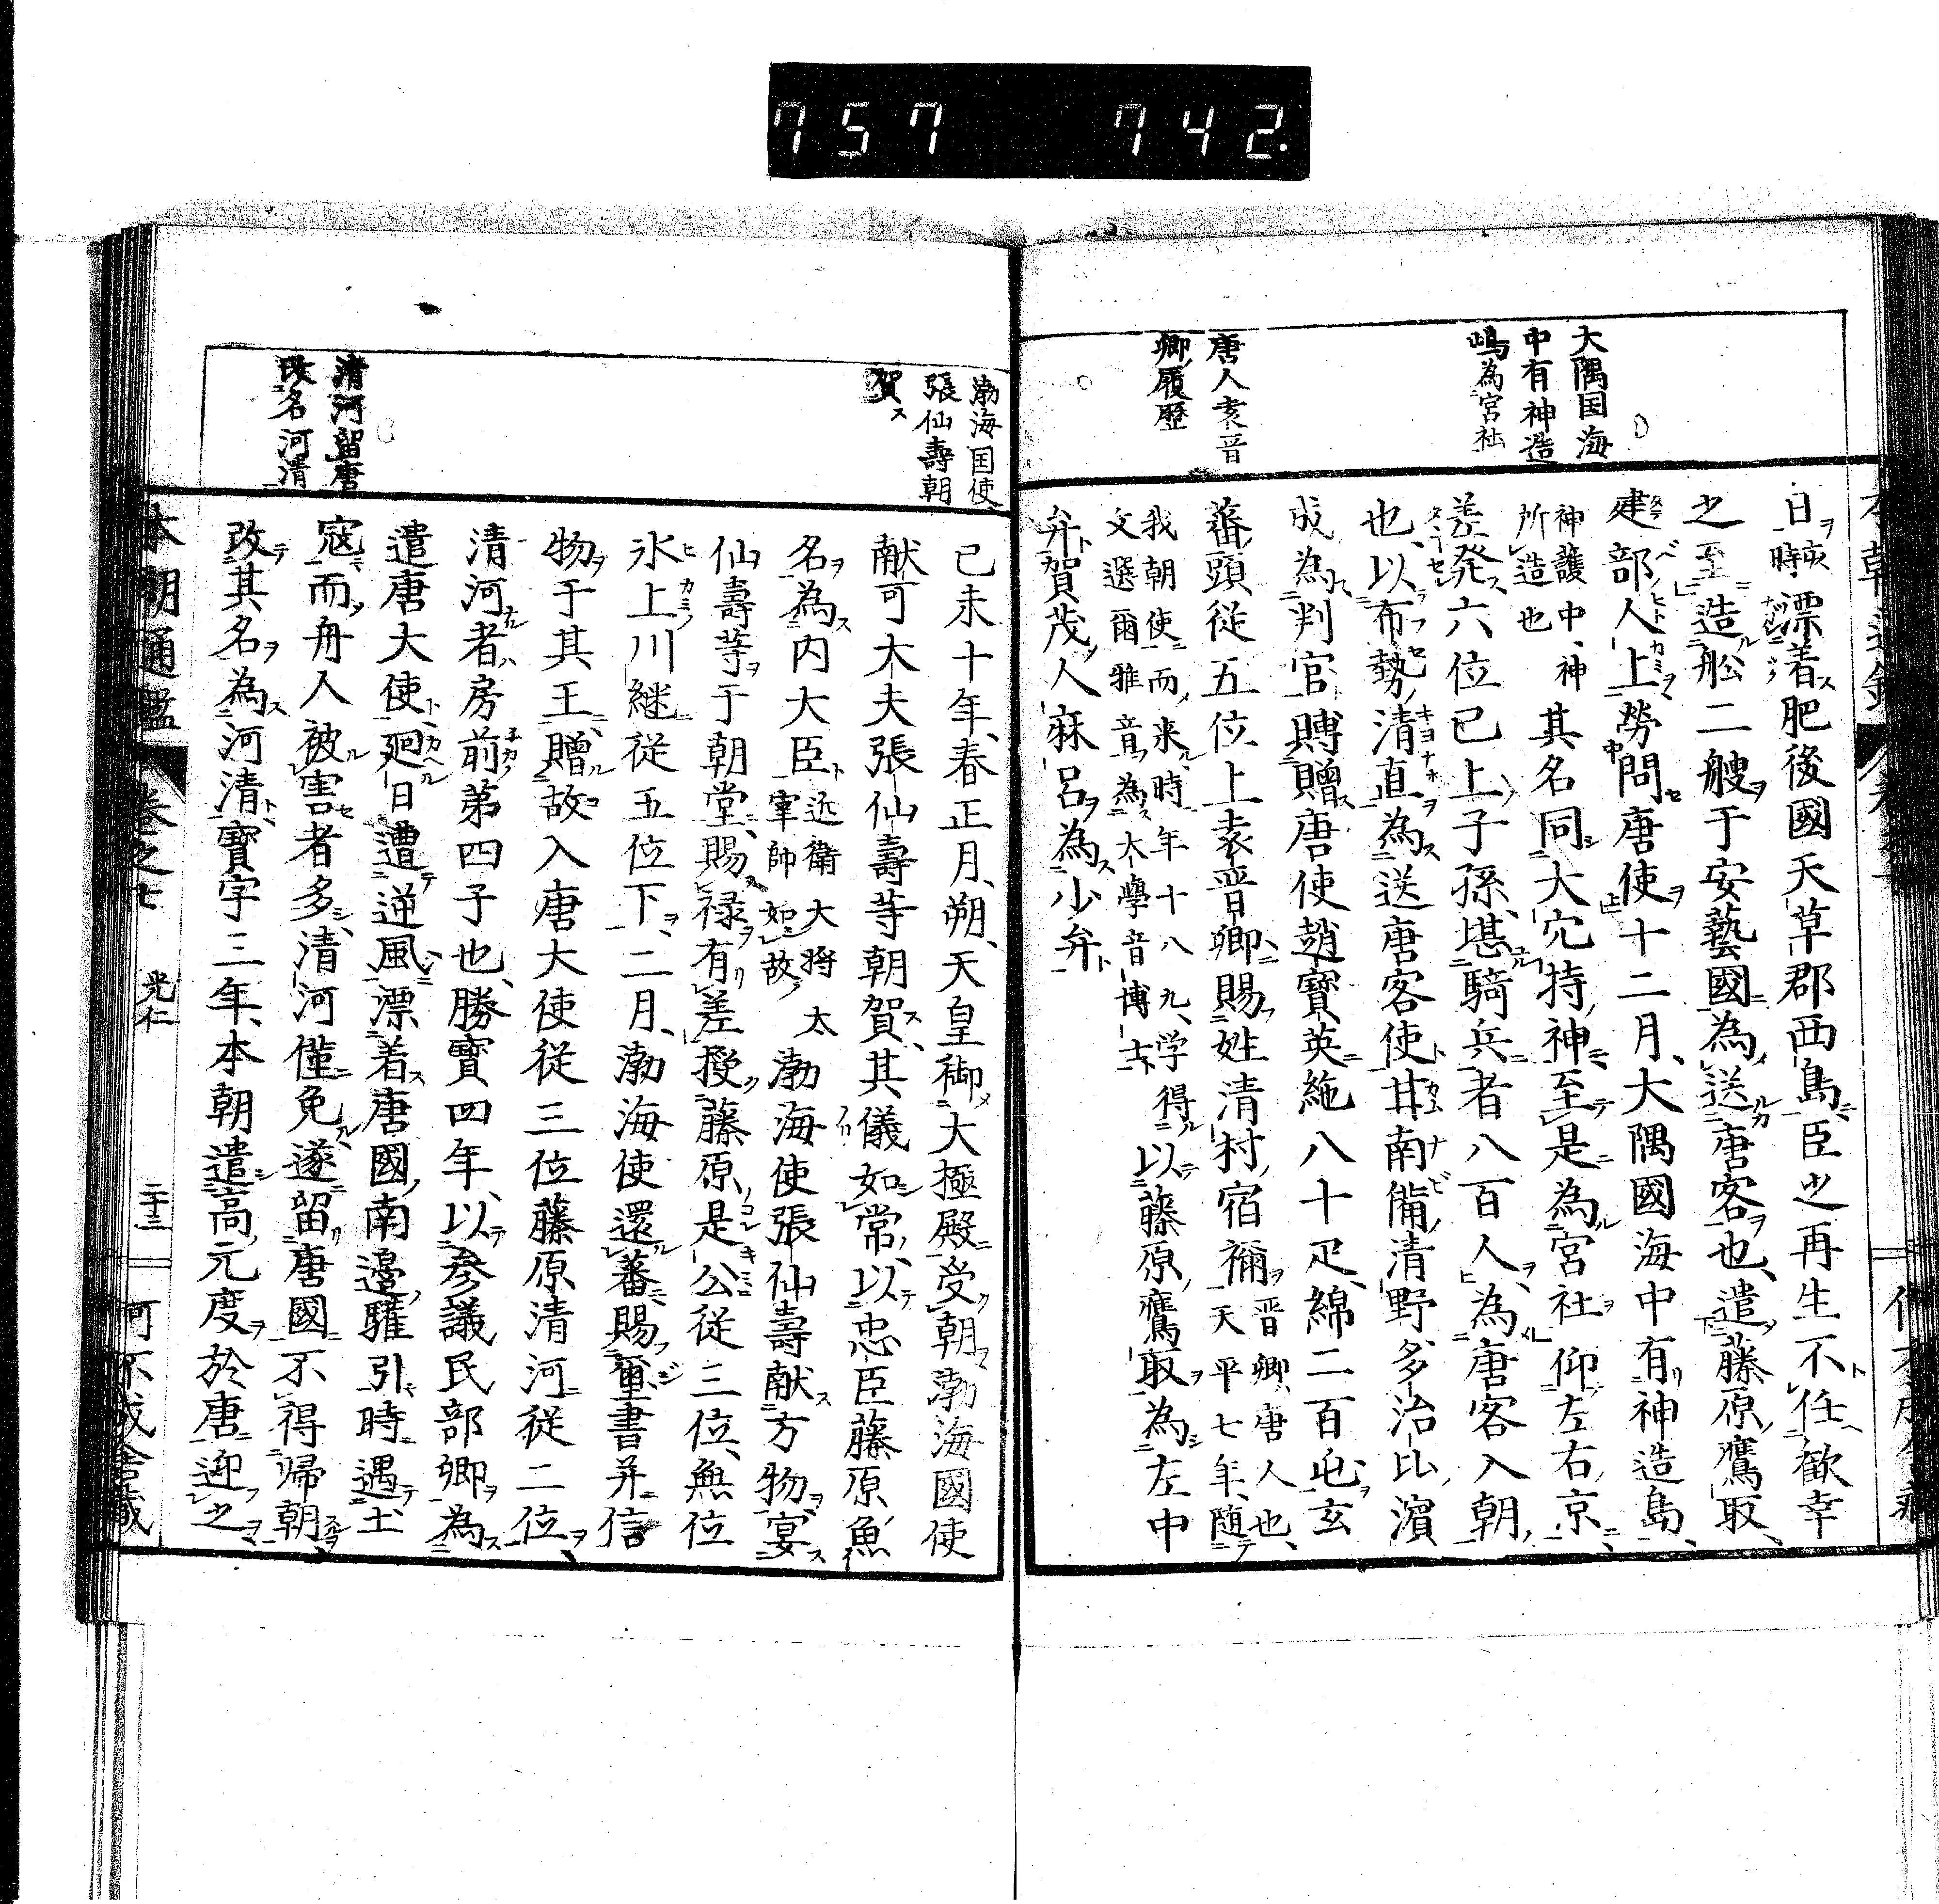 757 742.
大隅国海
中有神造
嶋為宮社
唐人袁晋
卿履歴
日亥時漂着肥後國天草郡西島臣之再生不任歓幸
之至造舩二艘于安藝國為送唐客也遣藤原鷹取
建部人上勞問唐使十二月大隅國海中有神造島
其名同大穴持神至是為宮社仰左右京
神護中神
所造也
差発六位已上子孫堪騎兵者八百人為唐客入朝
也以布勢清直為送唐客使甘南備清野多治比濵
成為判官賻贈唐使趙寶英絁八十疋綿二百屯玄
蕃頭從五位上袁晋卿賜姓清村宿禰
晋卿唐人也
天平七年随
我朝使而来時年十八九学得
文選爾雅音為大學音博士
以藤原鷹取為左中
弁賀茂人麻呂為少弁
渤海国使
張仙壽朝
賀ス
清河留唐
改名河清
己未十年春正月朔天皇御大極殿受朝渤海國使
献可大夫張仙壽等朝賀其儀如常以忠臣藤原魚
名為内大臣
近衛大将太
宰帥如故
渤海使張仙壽献方物宴
仙壽等于朝堂賜禄有差授藤原是公從三位無位
氷上川継従五位下二月渤海使還蕃賜璽書并信
物于其王贈故入唐大使従三位藤原清河従二位
清河者房前第四子也勝寳四年以参議民部卿為
遣唐大使廻日遭逆風漂着唐國南邉驩引時遇土
寇而舟人被害者多清河僅免遂留唐國不得帰朝
改其名為河清寳字三年本朝遣高元度於唐迎之
本朝通鑑 巻之七 光仁 二十三